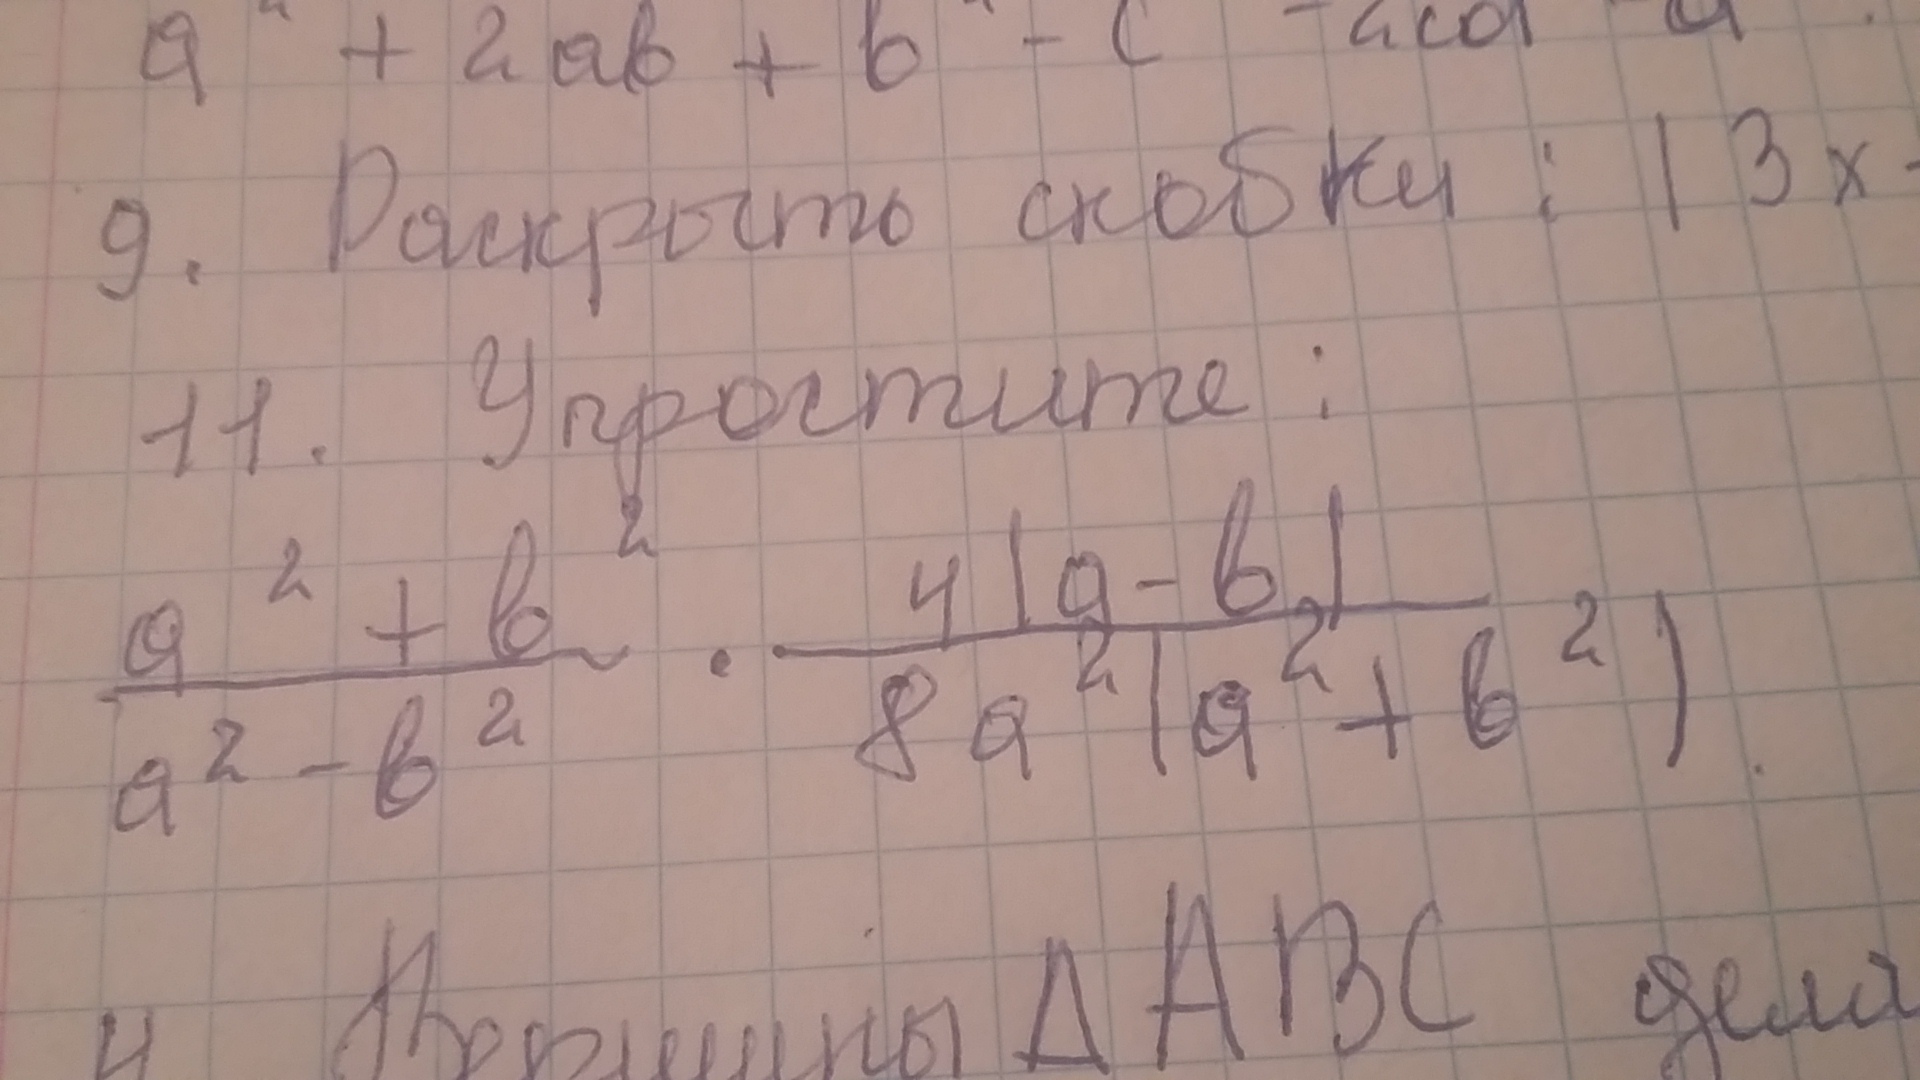 a² + 2ab + b² - c² - 2cd
9. Раскрыть скобки : (3x -
11. Упростите :
a² + b² / a² - b² · 4(a - b) / 8a²(a² + b²)
4 Вершины Δ ABC дела